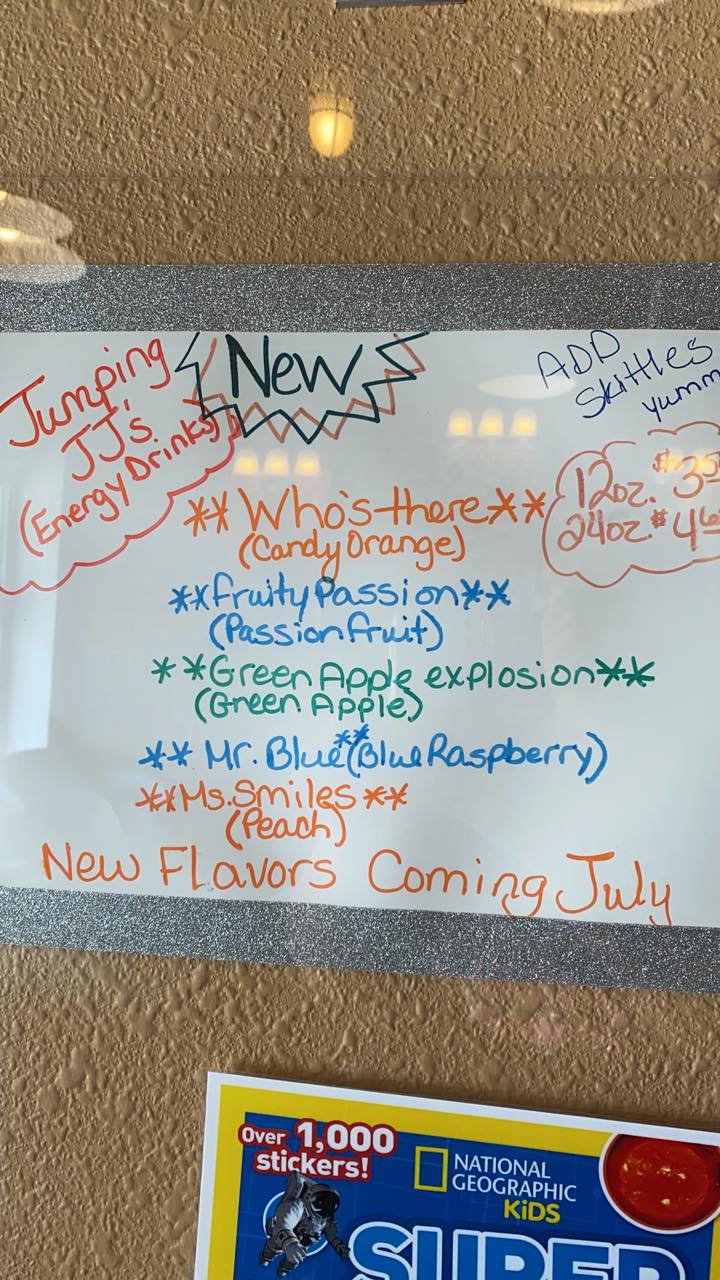 Jumping
JJ's
(Energy Drinks)
New
ADD
Skittles
yumm
12oz. $3
24oz $4
** Who's there **
(Candy Orange)
**Fruity Passion**
(Passion fruit)
**Green Apple explosion**
(Green Apple)
** Mr. Blue ** (Blue Raspberry)
**Ms. Smiles **
(Peach)
New Flavors Coming July
Over 1,000
stickers!
NATIONAL
GEOGRAPHIC
KiDS
SUPER